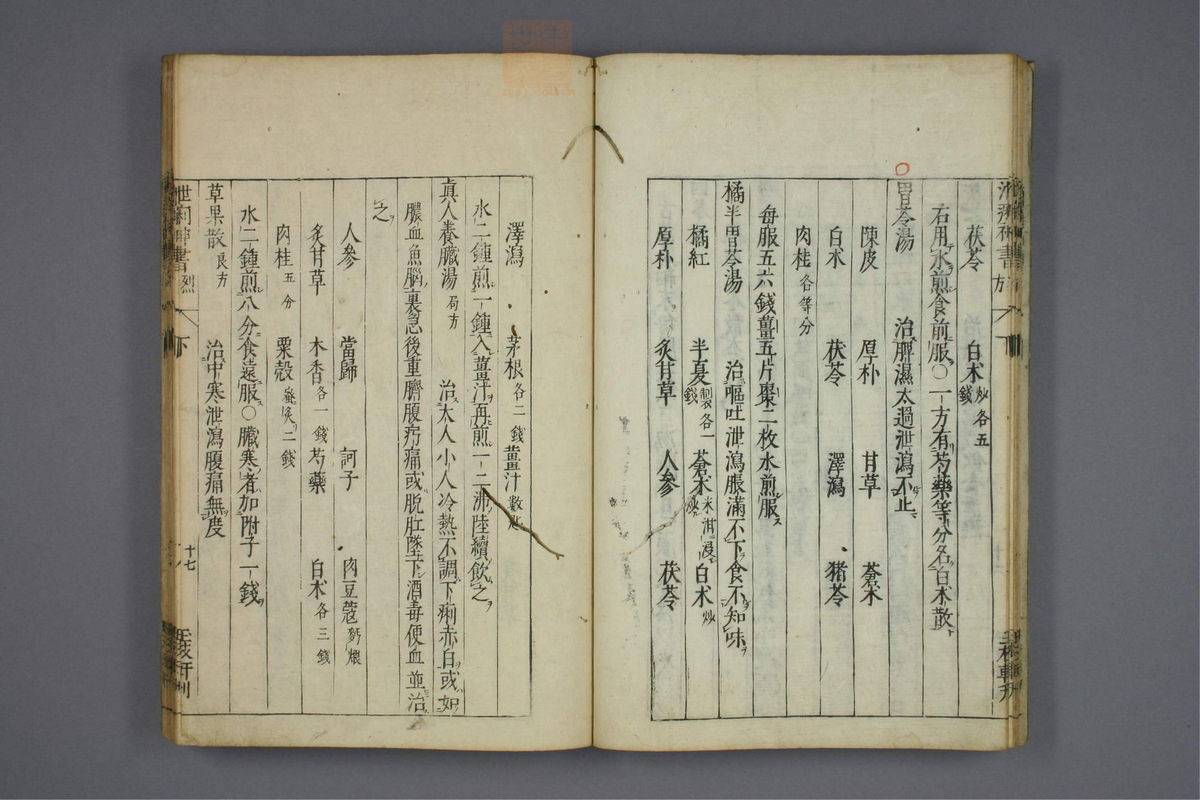 茯苓 白朮炒各五錢
右用水煎食前服○一方有芍藥等分名白朮散
胃苓湯 治脾濕太過泄瀉不止
陳皮 厚朴 甘草 蒼朮
白朮 茯苓 澤瀉 猪苓
肉桂各等分
每服五六錢薑五片棗二枚水煎服
橘半胃苓湯 治嘔吐泄瀉脹滿不下食不知味
橘紅 半夏製各一錢 蒼朮米泔浸炒 白朮炒
厚朴 炙甘草 人參 茯苓
澤瀉 茅根各二錢 薑汁數匙
水二鍾煎一鍾入薑汁再煎一二沸陸續飲之
真人養臟湯局方 治大人小人冷熱不調下痢赤白或如
膿血魚腦裏急後重臍腹㽲痛或脫肛墜下酒毒便血並治
之
人參 當歸 訶子 肉豆蔻麪煨
炙甘草 木香各一錢 芍藥 白朮各三錢
肉桂五分 粟殼蜜炙二錢
水二鍾煎八分食遠服○臟寒者加附子一錢
草果散良方 治中寒泄瀉腹痛無度
下
十七